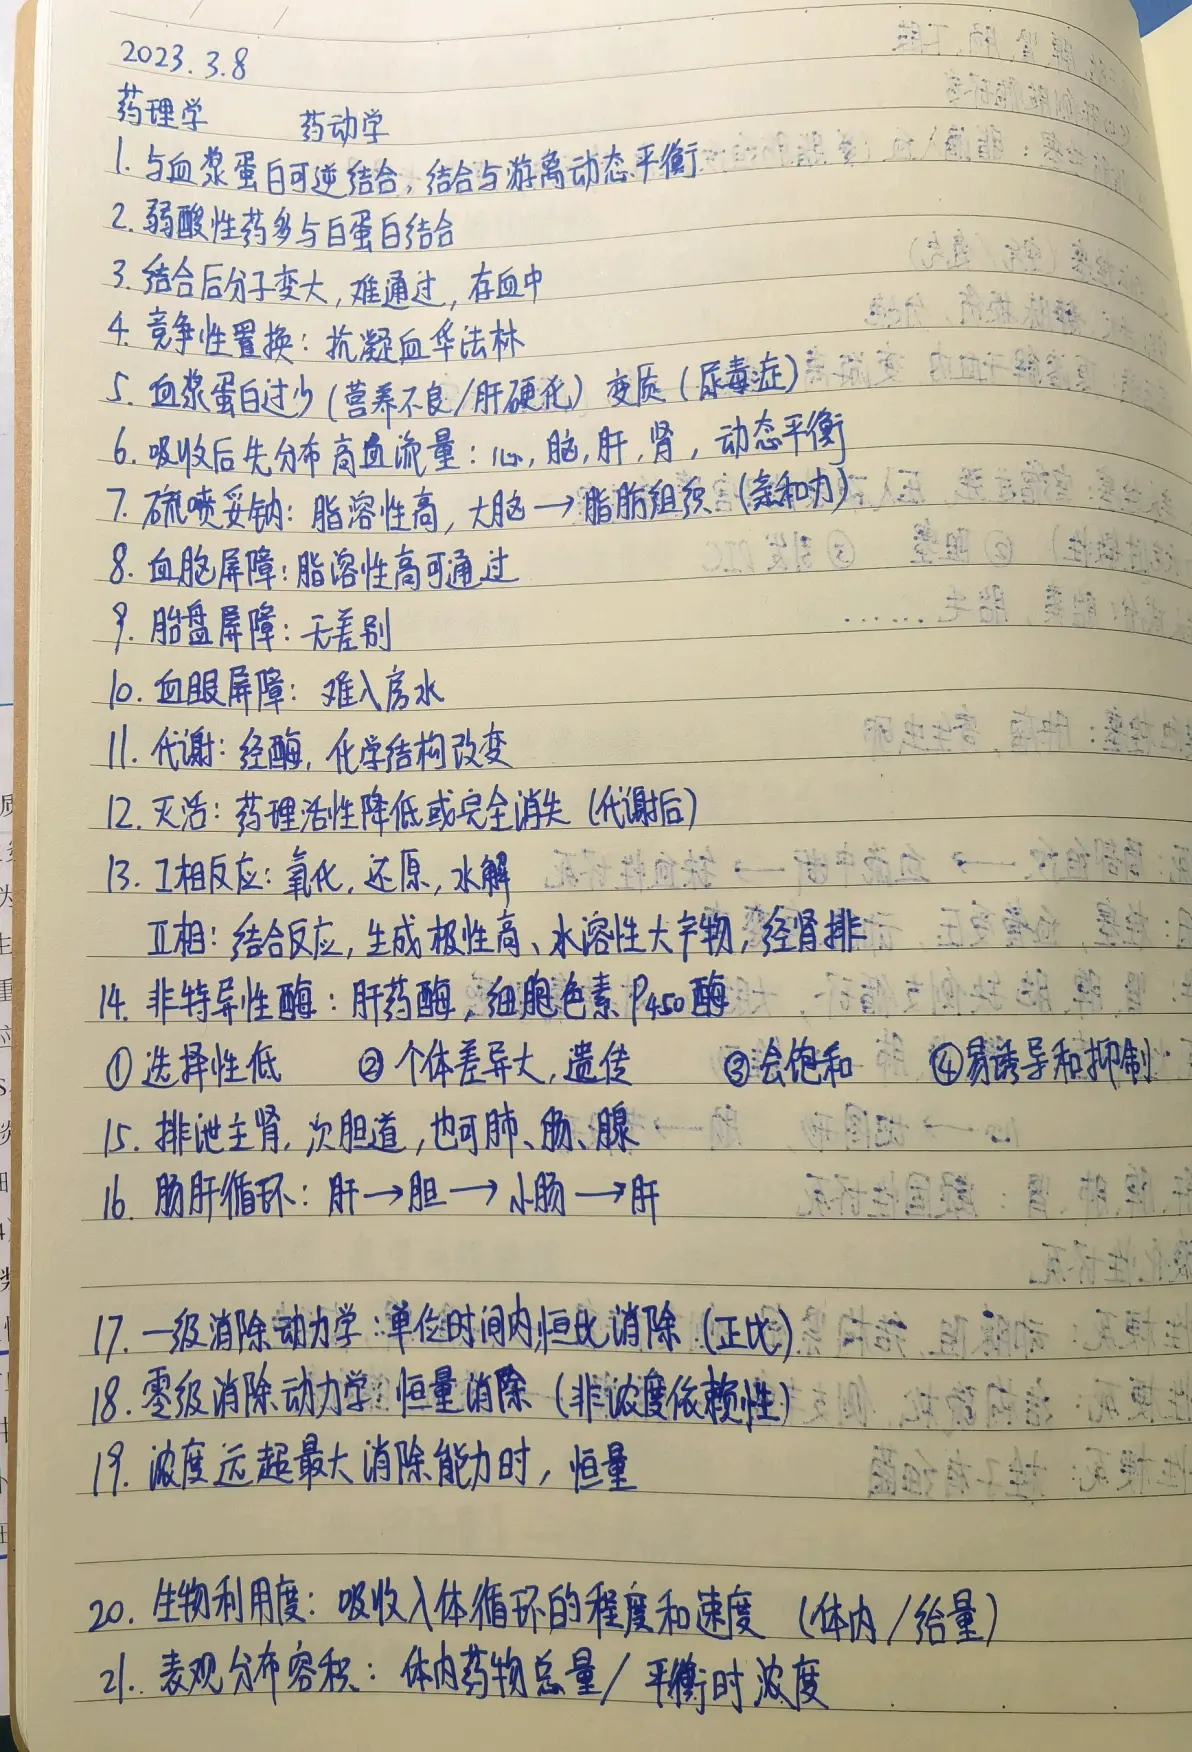 2023.3.8
药理学 药动学
1. 与血浆蛋白可逆结合，结合与游离动态平衡
2. 弱酸性药多与白蛋白结合
3. 结合后分子变大，难通过，存血中
4. 竞争性置换：抗凝血华法林
5. 血浆蛋白过少（营养不良/肝硬化） 变质（尿毒症）
6. 吸收后先分布高血流量：心，脑，肝，肾，动态平衡
7. 硫喷妥钠：脂溶性高，大脑→脂肪组织（亲和力）
8. 血脑屏障：脂溶性高可通过
9. 胎盘屏障：无差别
10. 血眼屏障：难入房水
11. 代谢：经酶，化学结构改变
12. 灭活：药理活性降低或完全消失（代谢后）
13. I相反应：氧化，还原，水解
II相：结合反应，生成极性高、水溶性大产物，经肾排
14. 非特异性酶：肝药酶，细胞色素P450酶
①选择性低 ②个体差异大，遗传 ③会饱和 ④易诱导和抑制
15. 排泄主肾，次胆道，也可肺、肠、腺
16. 肠肝循环：肝→胆→小肠→肝
17. 一级消除动力学：单位时间内恒比消除（正比）
18. 零级消除动力学：恒量消除（非浓度依赖性）
19. 浓度远超最大消除能力时，恒量
20. 生物利用度：吸收入体循环的程度和速度（体内/给量）
21. 表观分布容积：体内药物总量/平衡时浓度